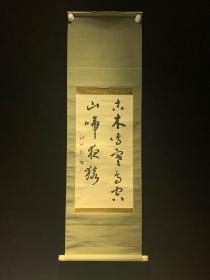 古木鳴寒鳥空
山啼夜猿